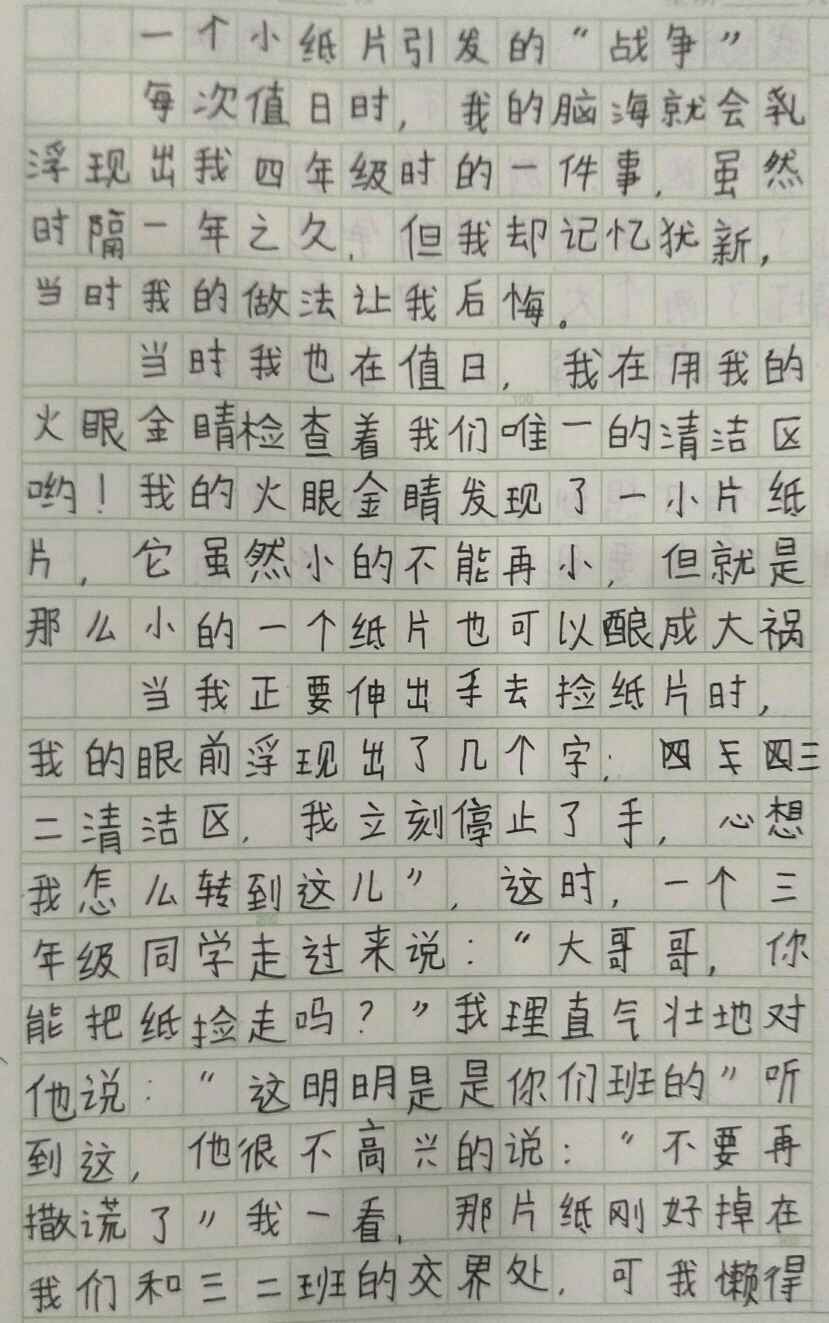 一个小纸片引发的“战争”
每次值日时，我的脑海就会乳
浮现出我四年级时的一件事，虽然
时隔一年之久，但我却记忆犹新，
当时我的做法让我后悔。
当时我也在值日，我在用我的
火眼金睛检查着我们唯一的清洁区
哟！我的火眼金睛发现了一小片纸
片，它虽然小的不能再小，但就是
那么小的一个纸片也可以酿成大祸
当我正要伸出手去捡纸片时，
我的眼前浮现出了几个字：四年四三
二清洁区，我立刻停止了手，心想
我怎么转到这儿”，这时，一个三
年级同学走过来说：“大哥哥，你
能把纸捡走吗？”我理直气壮地对
他说：“这明明是是你们班的”听
到这，他很不高兴的说：“不要再
撒谎了”我一看，那片纸刚好掉在
我们和三二班的交界处，可我懒得